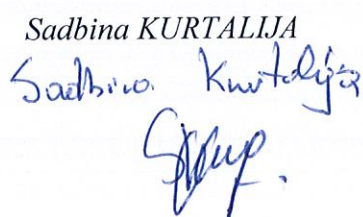 Sadbina KURTALIJA
Sadbina Kurtalija